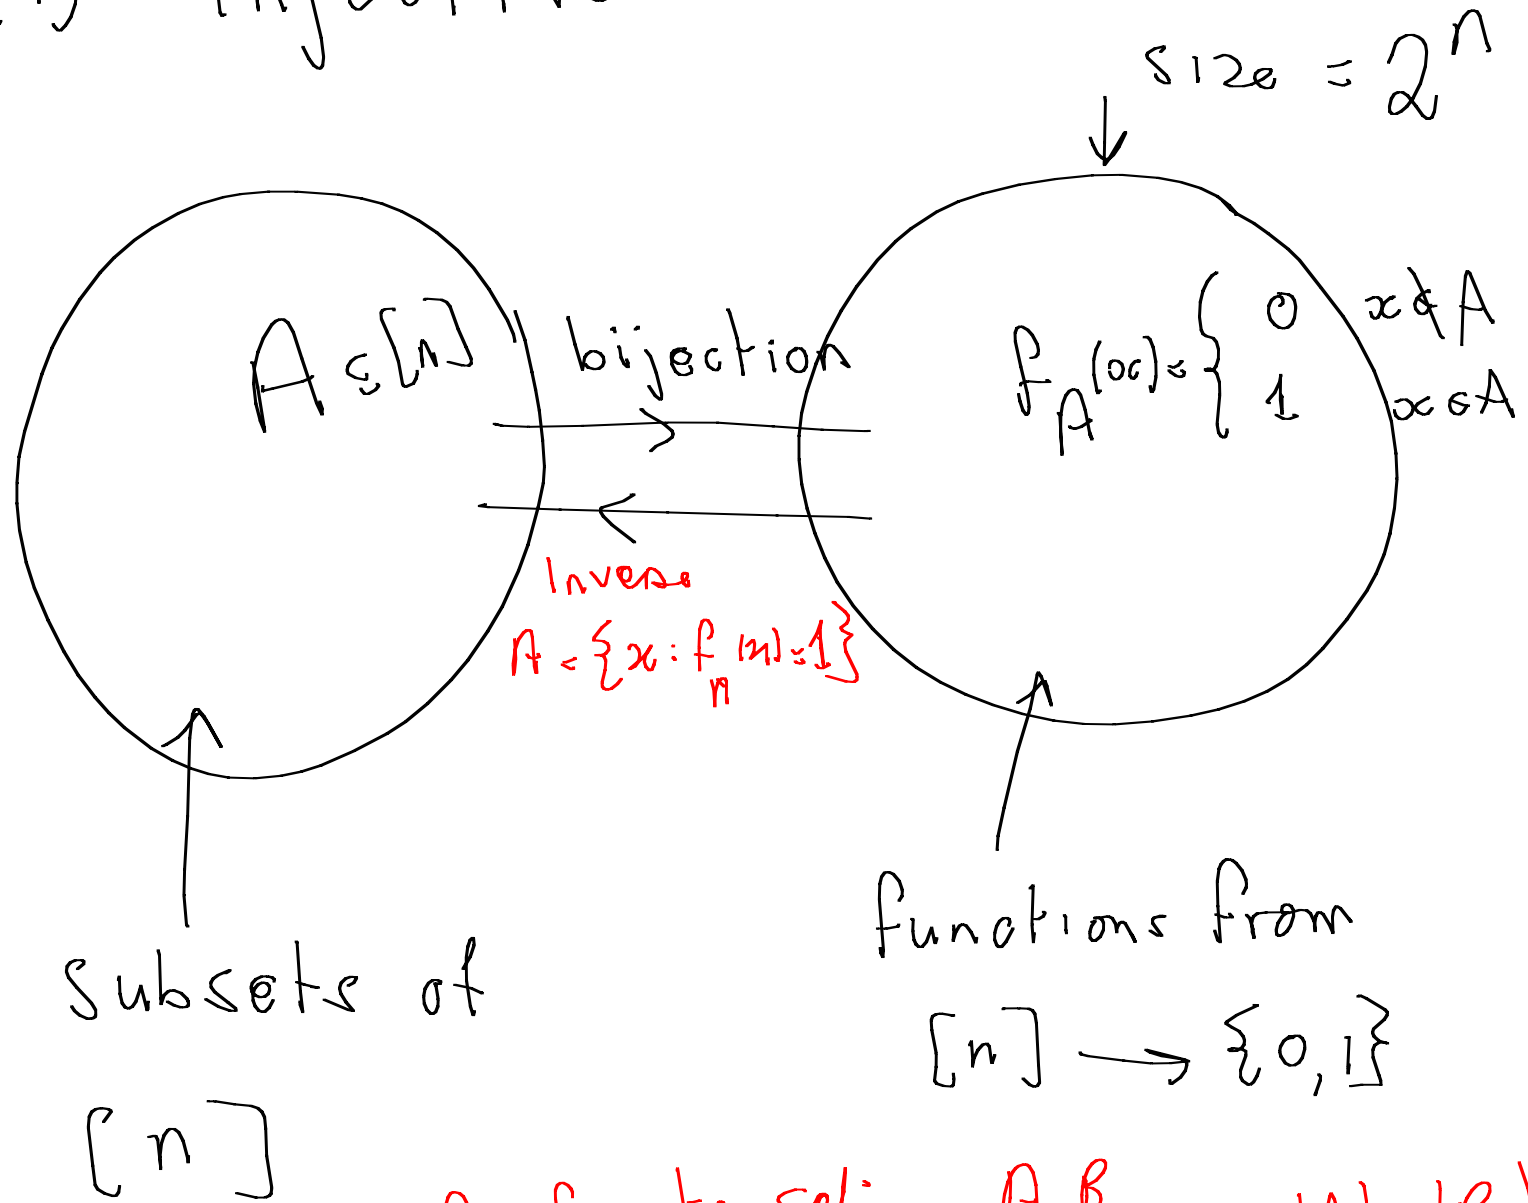 size = 2^n
A ⊆ [n]
bijection
f_A(x) = { 0 x ∉ A
1 x ∈ A
Inverse
A = {x : f_n(x) = 1}
subsets of
[n]
functions from
[n] → {0,1}